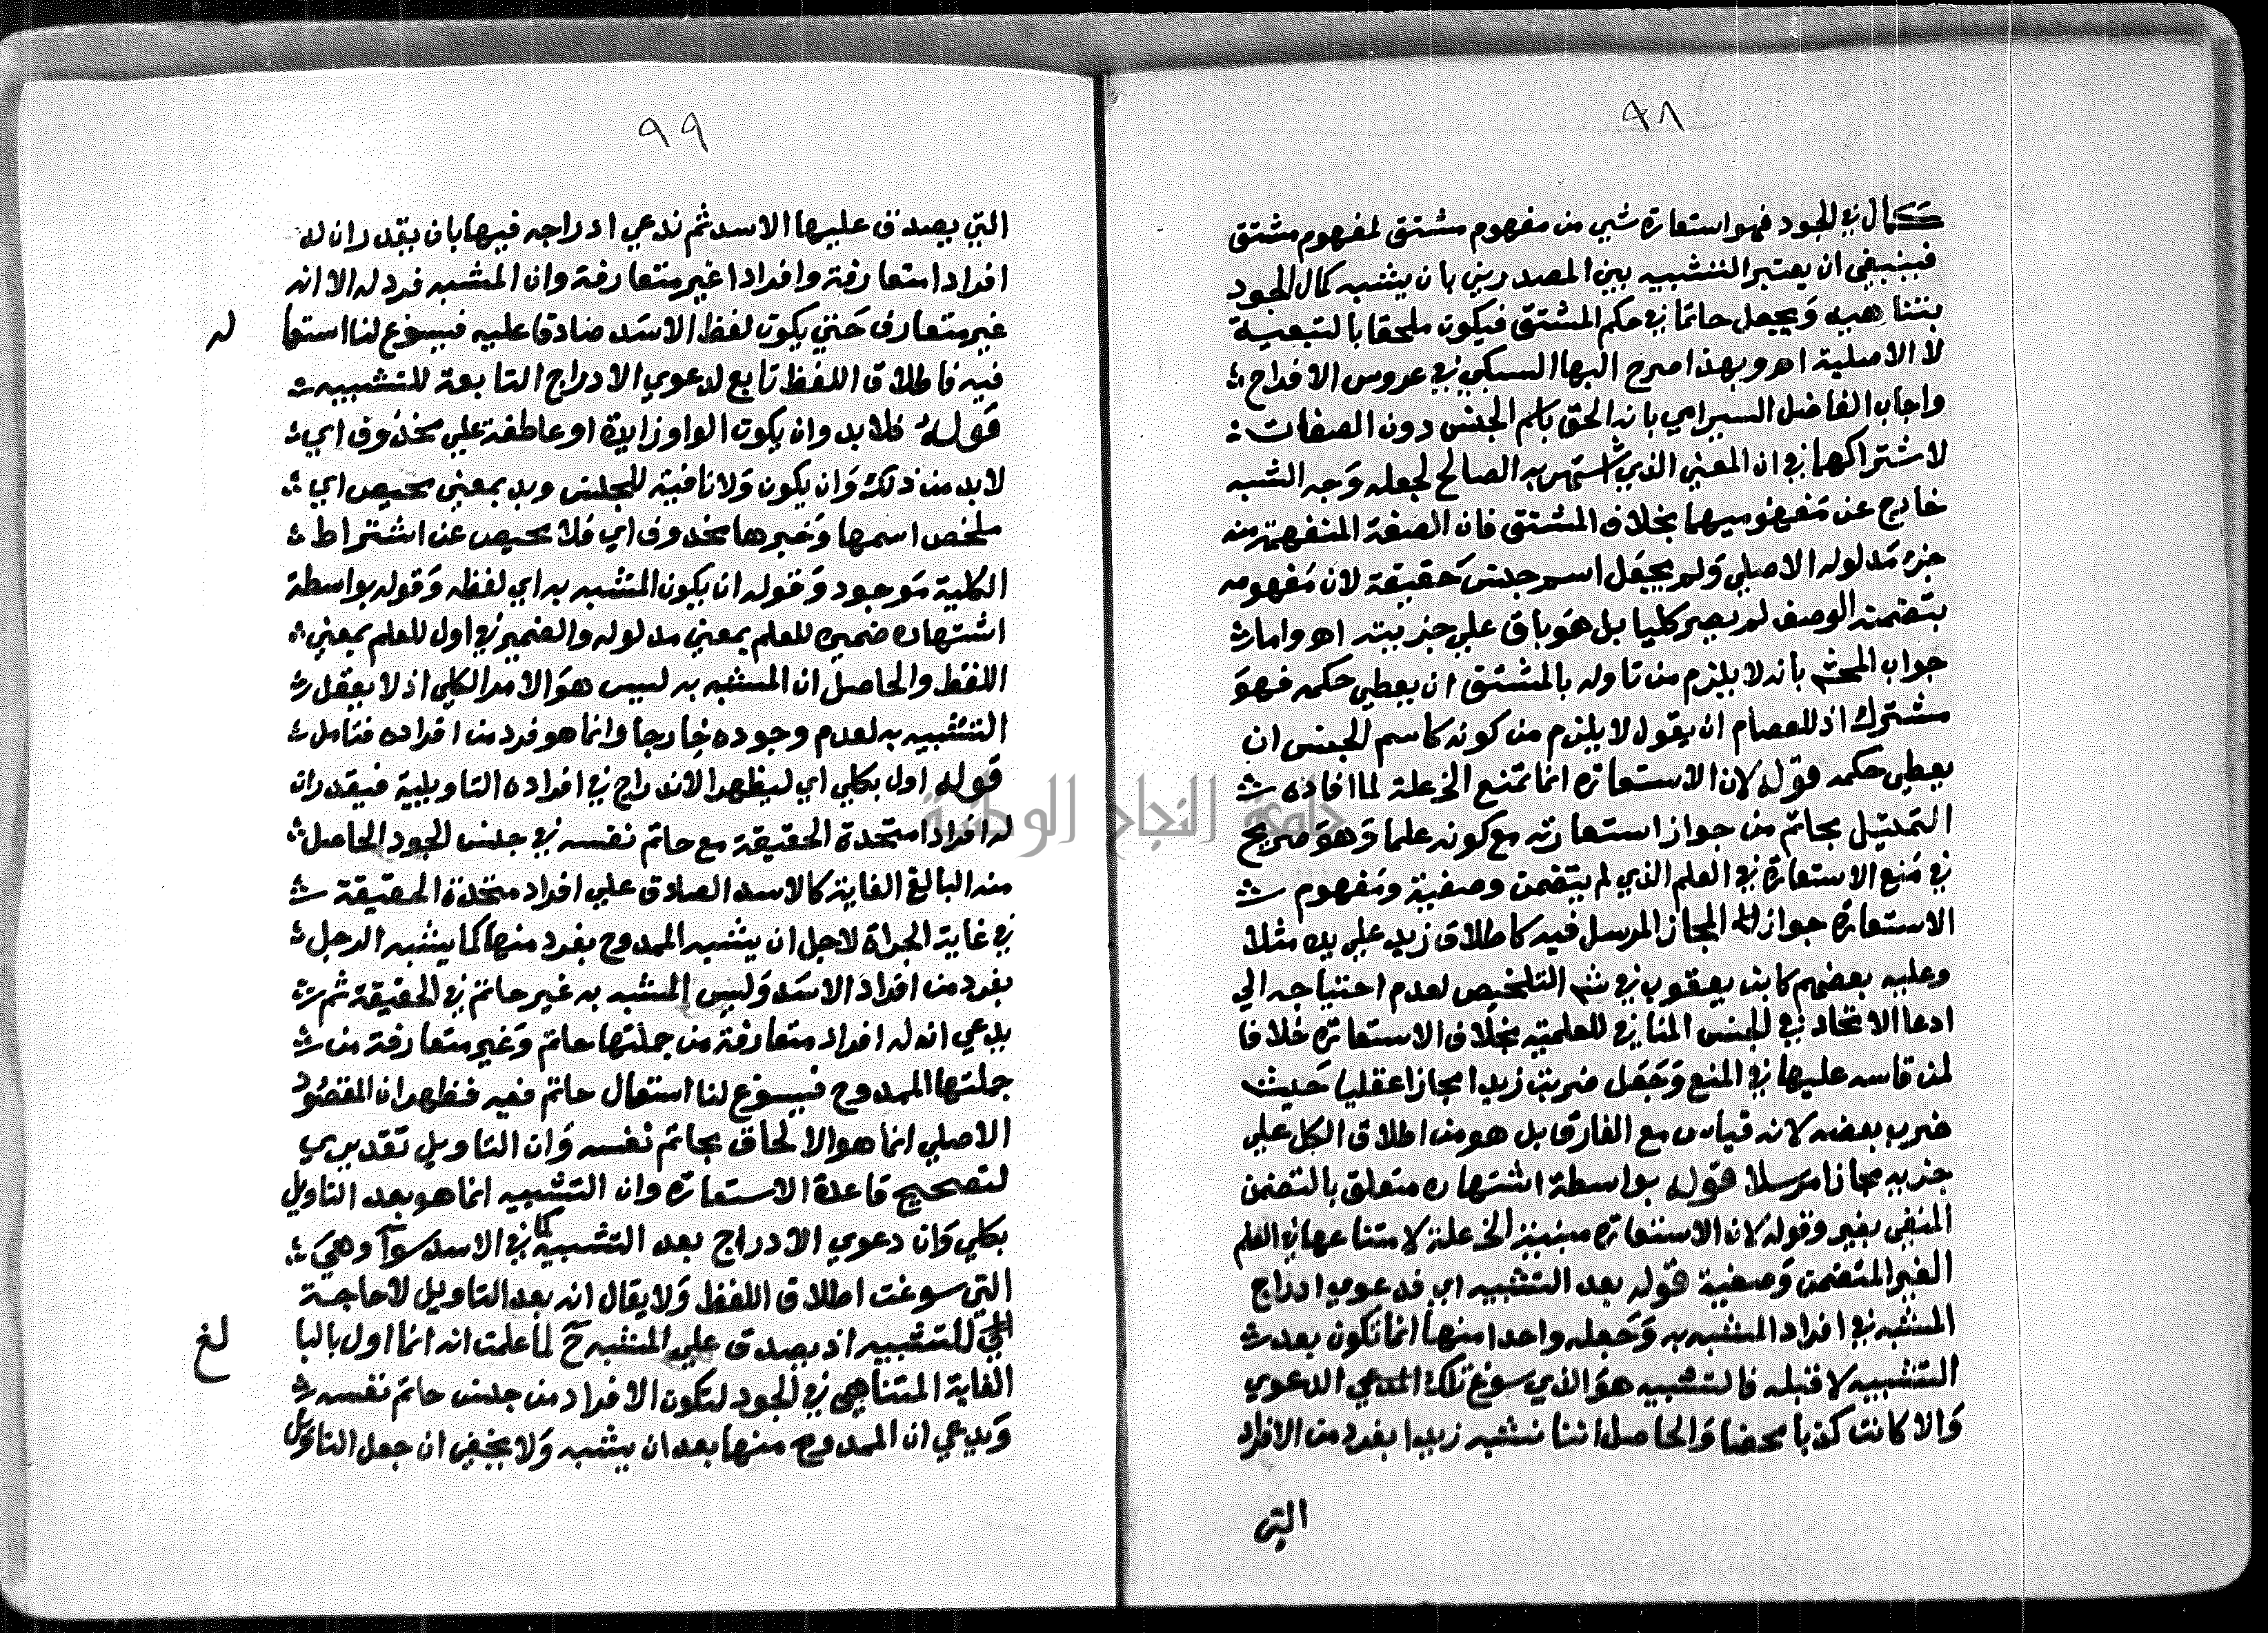 ٩٨
كمال في الجود فهو استعارة شي من مفهوم مشتق لمفهوم مشتق
فينبغي ان يعتبر التشبيه بين المصدرين بان يشبه كمال الجود
بتناهيه ويجعل حاتما في حكم المشتق فيكون ملحقا بالتبعية
لا الاصلية اهـ وبهذا صرح البها السبكي في عروس الافراح
واجاب الفاضل السيرامي بانه الحق باسم الجنس دون الصفات
لاشتراكهما في ان المعني الذي اشتهر به الصالح لجعله وجه الشبه
خارج عن مفهوميهما بخلاف المشتق فان الصفة المنفهمة منه
جزء مدلوله الاصلي ولم يجعل اسم جنس حقيقة لان مفهومه
بتضمنه الوصف لم يصر كليا بل هو باق علي جزييته اهـ واما
جواب المحشي بانه لا يلزم من تاوله بالمشتق ان يعطي حكمه فهو
مشترك اذ للعصام ان يقول لا يلزم من كونه كاسم الجنس ان
يعطي حكمه قوله لان الاستعارة انما تمتنع الخ علة لما افاده
التمثيل بحاتم من جواز استعارته مع كونه علما وهو صريح
في منع الاستعارة في العلم الذي لم يتضمن وصفية ومفهوم
الاستعارة جواز المجاز المرسل فيه كاطلاق زيد علي يده مثلا
وعليه بعضهم كابن يعقوب في شرح التلخيص لعدم احتياجه الي
ادعا الاتحاد في الجنس المنافي للعلمية بخلاف الاستعارة خلافا
لمن قاسه عليها في المنع وجعل ضربت زيدا مجازا عقليا حيث
ضرب بعضه لانه قياس مع الفارق بل هو من اطلاق الكل علي
جزيه مجازا مرسلا قوله بواسطة اشتهاره متعلق بالتضمن
المنفي بغير وقوله لان الاستعارة مبنية الخ علة لامتناعها في العلم
الغير المتضمن وصفية قوله بعد التشبيه اي فدعوي ادراج
المشبه في افراد المشبه به وجعله واحدا منها انما تكون بعد
التشبيه لا قبله فالتشبيه هو الذي سوغ تلك المدعي الدعوي
والا كانت كذبا محضا والحاصل اننا نشبه زيدا بفرد من الافراد
التي
٩٩
التي يصدق عليها الاسد ثم ندعي ادراجه فيها بان يقدر ان له
افرادا متعارفة وافرادا غير متعارفة وان المشبه فرد له الا انه
غير متعارف حتي يكون لفظ الاسد صادقا عليه فيسوغ لنا استعما
له
فيه فاطلاق اللفظ تابع لدعوي الادراج التابعة للتشبيه
قوله فلا بد وان يكون الواو زايدة او عاطفة علي محذوف اي
لا بد من ذلك وان يكون ولا نافية للجنس وبد بمعني محيص اي
ملخص اسمها وخبرها محذوف اي فلا محيص عن اشتراط
الكلية موجود وقوله ان يكون المشبه به اي لفظه وقوله بواسطة
اشتهاره ضميره للعلم بمعني مدلوله والضمير في اول للعلم بمعني
اللفظ والحاصل ان المشبه به ليس هو الامر الكلي اذ لا يعقل
التشبيه به لعدم وجوده خارجا وانما هو فرد من افراده فتامل
قوله اول بكلي اي ليظهر الاندراج في افراده التاويلية فيقدر ان
له افرادا متحدة الحقيقة مع حاتم نفسه في جنس الجود الحاصل
منه البالغ الغاية كالاسد الصادق علي افراد متحدة الحقيقة
في غاية الجراة لاجل ان يشبه الممدوح بفرد منها كما يشبه الرجل
بفرد من افراد الاسد وليس المشبه به غير حاتم في الحقيقة ثم
يدعي ان له افراد متعارفة من جملتها حاتم وغير متعارفة من
جملتها الممدوح فيسوغ لنا استعمال حاتم فيه فظهر ان المقصود
الاصلي انما هو الالحاق بحاتم نفسه وان التاويل تقديري
لتصحيح قاعدة الاستعارة وان التشبيه انما هو بعد التاويل
بكلي وان دعوي الادراج بعد التشبيه كما في الاسد سوآ وهي
التي سوغت اطلاق اللفظ ولا يقال انه بعد التاويل لا حاجة
الي للتشبيه اذ يصدق علي المشبه ح لما علمت انه انما اول بالبا
لغ
الغاية المتناهي في الجود لتكون الافراد من جنس حاتم نفسه
ويدعي ان الممدوح منها بعد ان يشبه ولا يخفي ان جعل التاويل